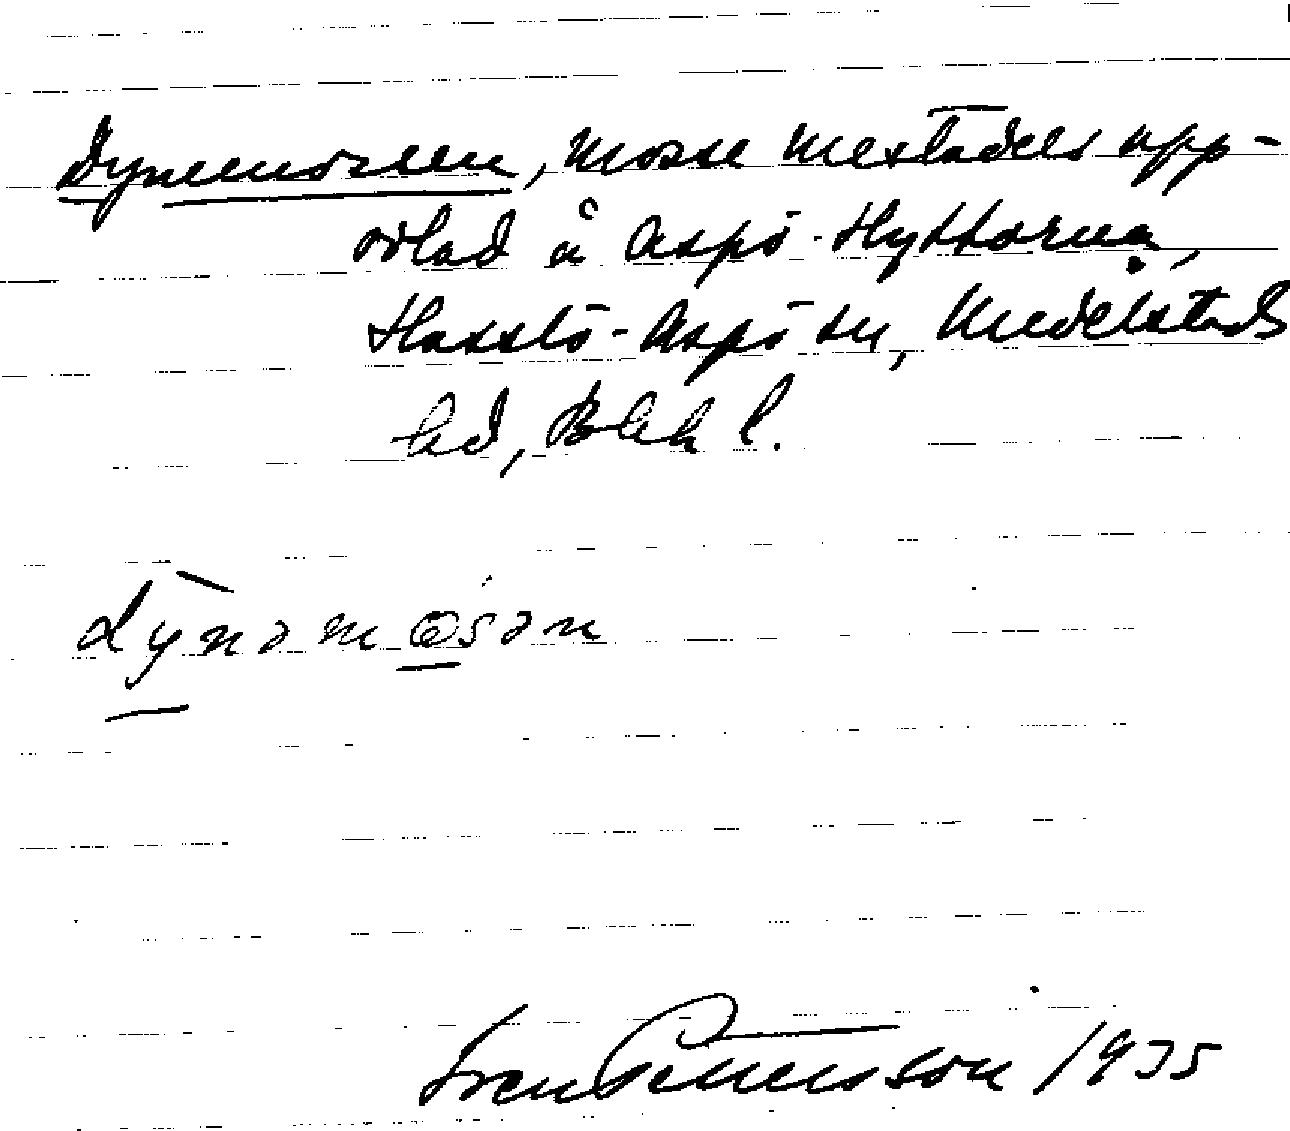 Dynemossen, mosse mestadels upp-
odlad å Aspö-Hyttorna,
Hasslö-Aspö sn, Medelstads
hd, Blek l.
dýnəmɷsən
Sven Pettersson 1935